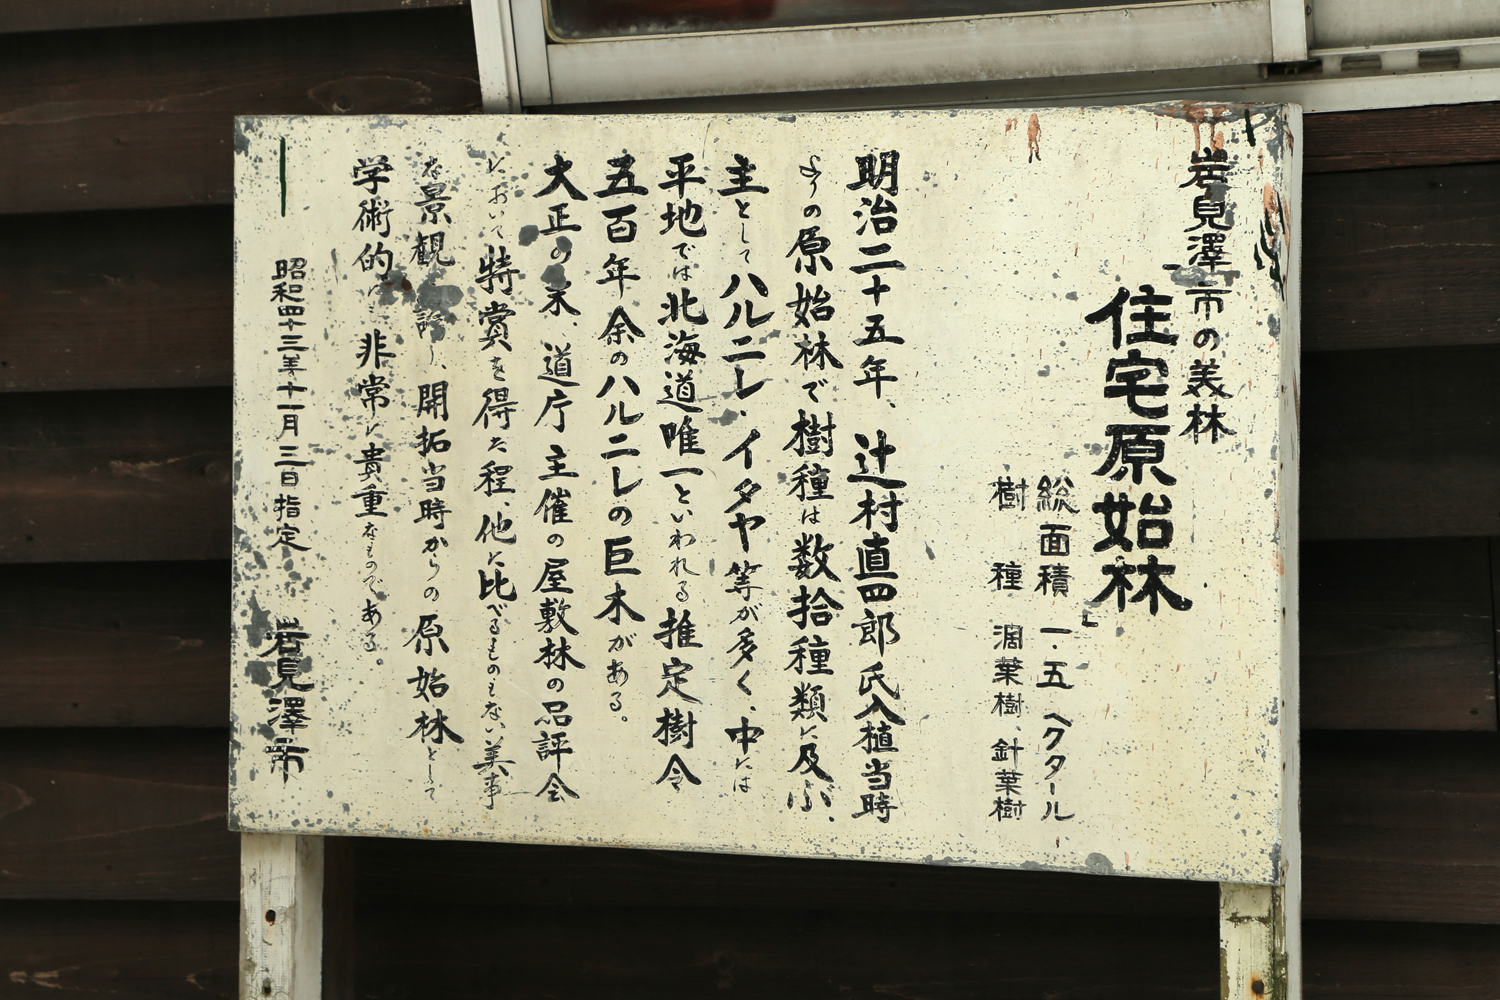 岩見澤市の美林
住宅原始林
総面積 一・五ヘクタール
樹種 濶葉樹、針葉樹
明治二十五年、辻村直四郎氏入植当時
よりの原始林で樹種は数拾種類に及ぶ、
主としてハルニレ・イタヤ等が多く、中には
平地では北海道唯一といわれる推定樹令
五百年余のハルニレの巨木がある。
大正の末、道庁主催の屋敷林の品評会
において特賞を得た程、他に比べるものもない美事
な景観を誇り、開拓当時からの原始林として
学術的に非常に貴重なものである。
昭和四十三年十一月三日指定
岩見澤市